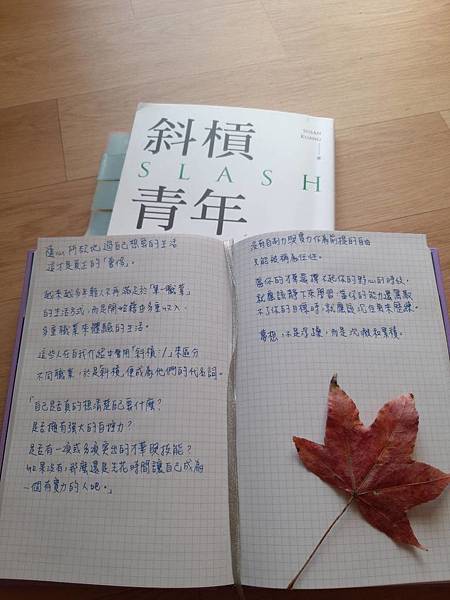 斜槓
SLASH
青年
SUSAN
KUANG
隨心所欲地過自己想要的生活
這才是真正的「奢侈」。
越來越多年輕人不再滿足於「單一職業」
的生活方式,而是開始藉由多重收入、
多重職業來體驗的生活。
這些人在自我介紹中會用「斜槓:/」來區分
不同職業,於是「斜槓」便成為他們的代名詞。
「自己是否真的想清楚自己要什麼?
是否擁有強大的自控力?
是否有一項或多項突出的才華與技能?
如果沒有,那麼還是先花時間讓自己成為
一個有實力的人吧。」
沒有自制力與實力作為前提的自由
只能被稱為任性。
當你的才華還撐不起你的野心的時候,
就應該靜下來學習;當你的能力還駕馭
不了你的目標時,就應該沉住氣來歷練。
夢想,不是浮躁,而是沉澱和累積。